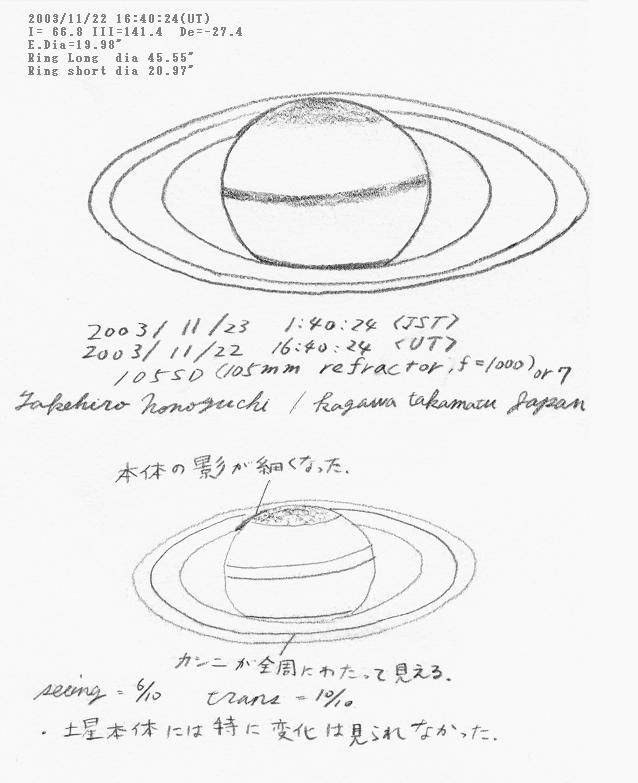 2003/11/22 16:40:24(UT)
I= 66.8 III=141.4 De=-27.4
E.Dia=19.98"
Ring Long dia 45.55"
Ring short dia 20.97"
2003/ 11 /23 1:40:24 <JST>
2003/ 11/22 16:40:24 <UT>
105SD (105mm refractor, f=1000) or 7
Takehiro Nonoguchi / Kagawa takamatu Japan
本体の影が細くなった.
カシニが全周にわたって見える.
seeing = 6/10 trans = 10/10
・土星本体には特に変化は見られなかった.